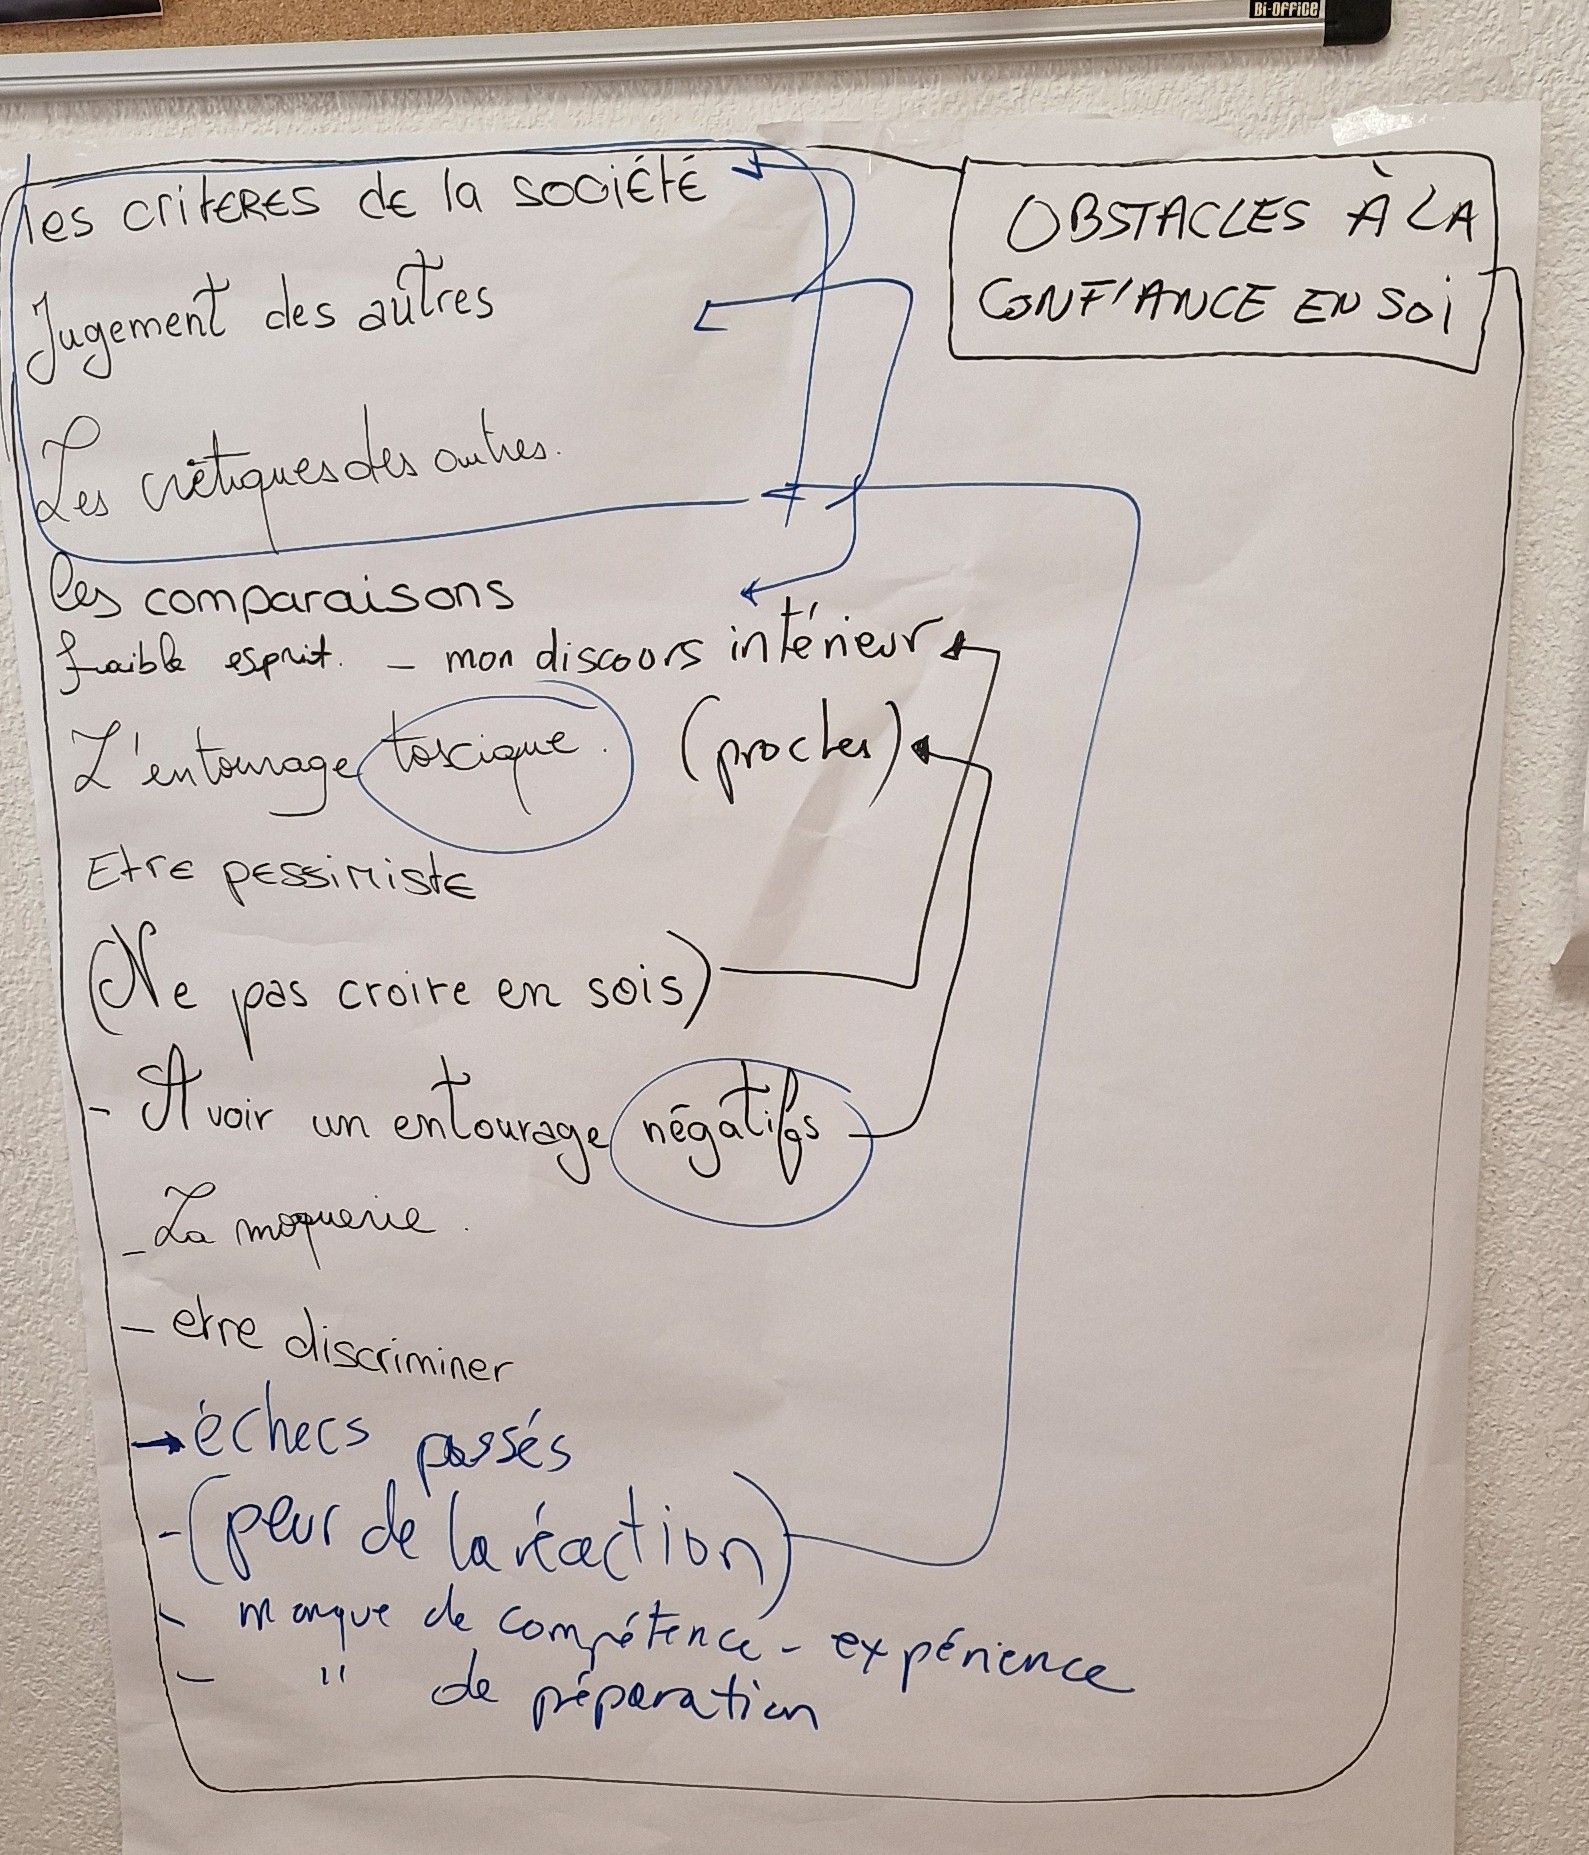 Bi-Office
OBSTACLES À LA
CONFIANCE EN SOI
les critères de la société
Jugement des autres
Les critiques des autres.
les comparaisons
faible esprit. - mon discours intérieur
L'entourage toxique. (proches)
Etre pessimiste
(Ne pas croire en sois)
- Avoir un entourage négatifs
- La moquerie.
- etre discriminer
→ échecs passés
- (peur de la réaction)
- manque de compétence - expérience
- " de préparation